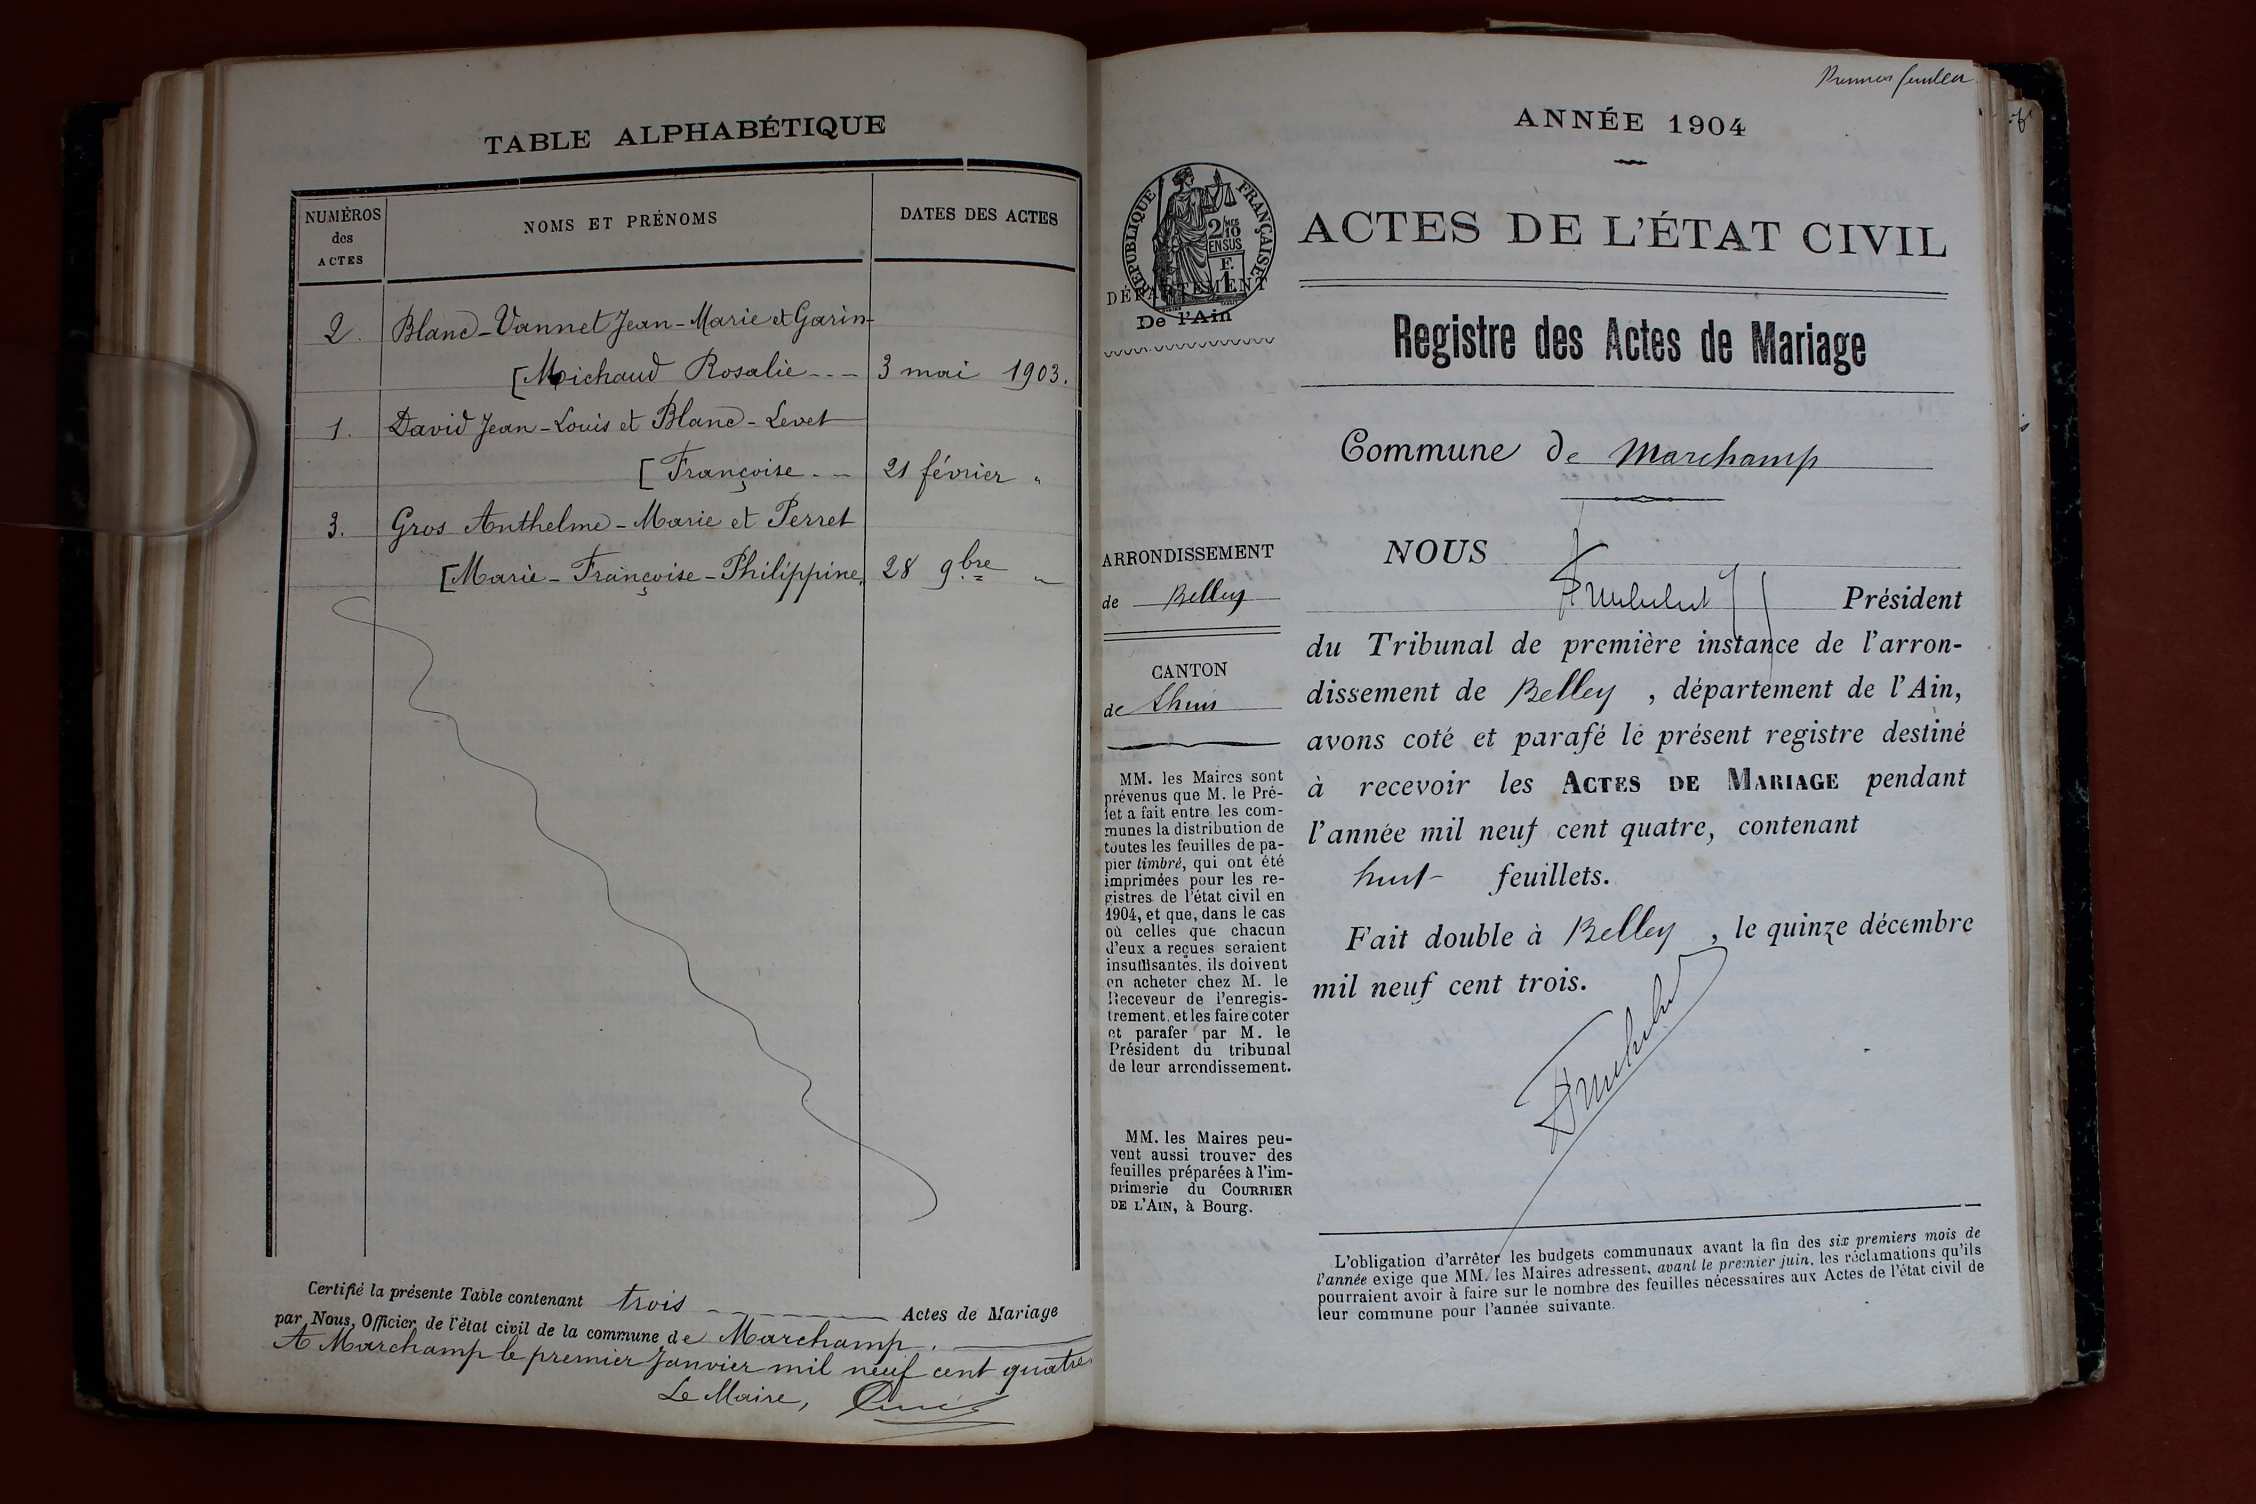 TABLE ALPHABÉTIQUE
NUMÉROS
des
ACTES
NOMS ET PRÉNOMS
DATES DES ACTES
2. Blanc-Vannet Jean-Marie et Garin-
[Michaud Rosalie 3 mai 1903.
1. David Jean-Louis et Blanc-Levet
[Françoise 21 février "
3. Gros Anthelme-Marie et Perret
[Marie-Françoise-Philippine, 28 9bre "
Certifié la présente Table contenant trois Actes de Mariage
par Nous, Officier de l'état civil de la commune de Marchamp.
A Marchamp le premier Janvier mil neuf cent quatre
Le Maire,
Premier feuillet
ANNÉE 1904
RÉPUBLIQUE FRANÇAISE
2/10 MES
EN SUS
F.
1
DÉPARTEMENT
De l'Ain
ACTES DE L'ÉTAT CIVIL
Registre des Actes de Mariage
Commune de Marchamp
ARRONDISSEMENT
de Belley
CANTON
de Lhuis
MM. les Maires sont
prévenus que M. le Pré-
fet a fait entre les com-
munes la distribution de
toutes les feuilles de pa-
pier timbré, qui ont été
imprimées pour les re-
gistres de l'état civil en
1904, et que, dans le cas
où celles que chacun
d'eux a reçues seraient
insuffisantes, ils doivent
en acheter chez M. le
Receveur de l'enregis-
trement, et les faire coter
et parafer par M. le
Président du tribunal
de leur arrondissement.
MM. les Maires peu-
vent aussi trouver des
feuilles préparées à l'im-
primerie du COURRIER
DE L'AIN, à Bourg.
NOUS
Président
du Tribunal de première instance de l'arron-
dissement de Belley, département de l'Ain,
avons coté et parafé le présent registre destiné
à recevoir les ACTES DE MARIAGE pendant
l'année mil neuf cent quatre, contenant
huit feuillets.
Fait double à Belley, le quinze décembre
mil neuf cent trois.
L'obligation d'arrêter les budgets communaux avant la fin des six premiers mois de
l'année exige que MM. les Maires adressent, avant le premier juin, les réclamations qu'ils
pourraient avoir à faire sur le nombre des feuilles nécessaires aux Actes de l'état civil de
leur commune pour l'année suivante.